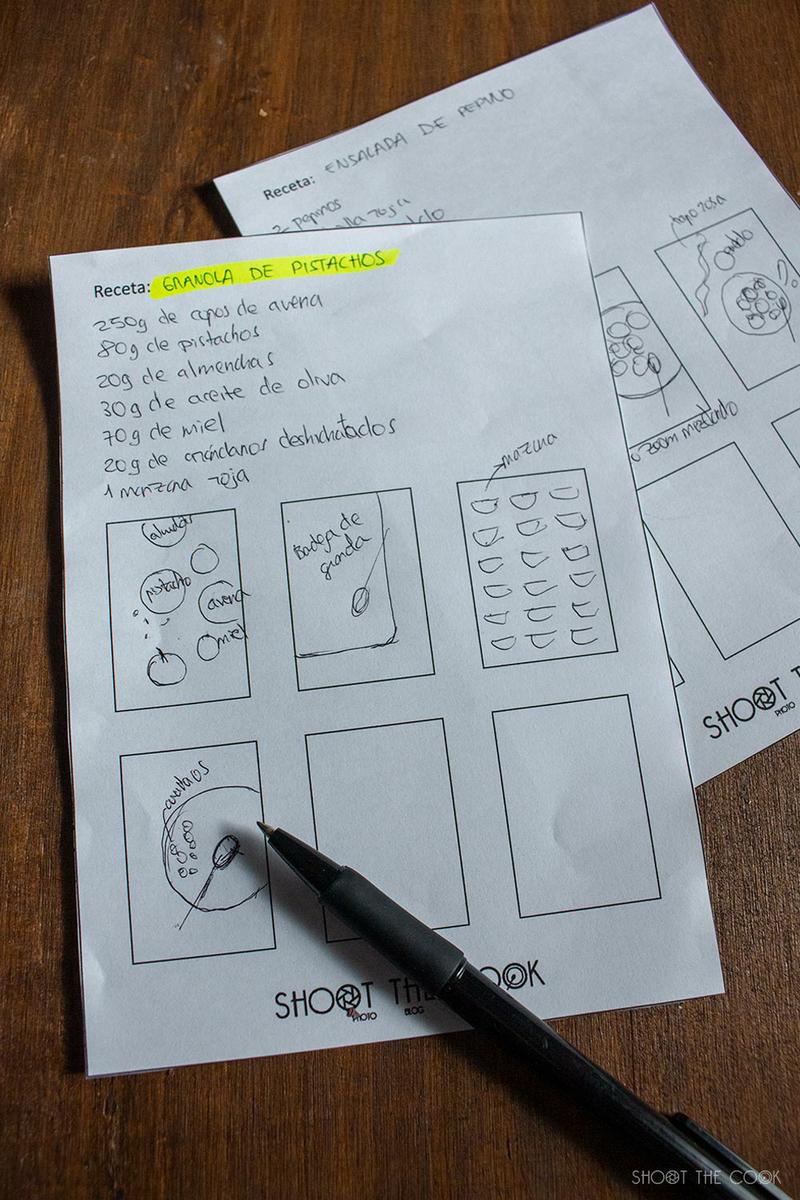 Receta: ENSALADA DE PEPINO
2 pepinos
roja
Receta: GRANOLA DE PISTACHOS
250g de copos de avena
80g de pistachos
20g de almendras
30g de aceite de oliva
70g de miel
20g de arándanos deshidratados
1 manzana roja
almendras
pistacho
avena
miel
Badeja de
granola
manzana
SHOOT THE COOK
PHOTO BLOG
zoom mezclando
SHOOT T
PHOTO
SHOOT THE COOK